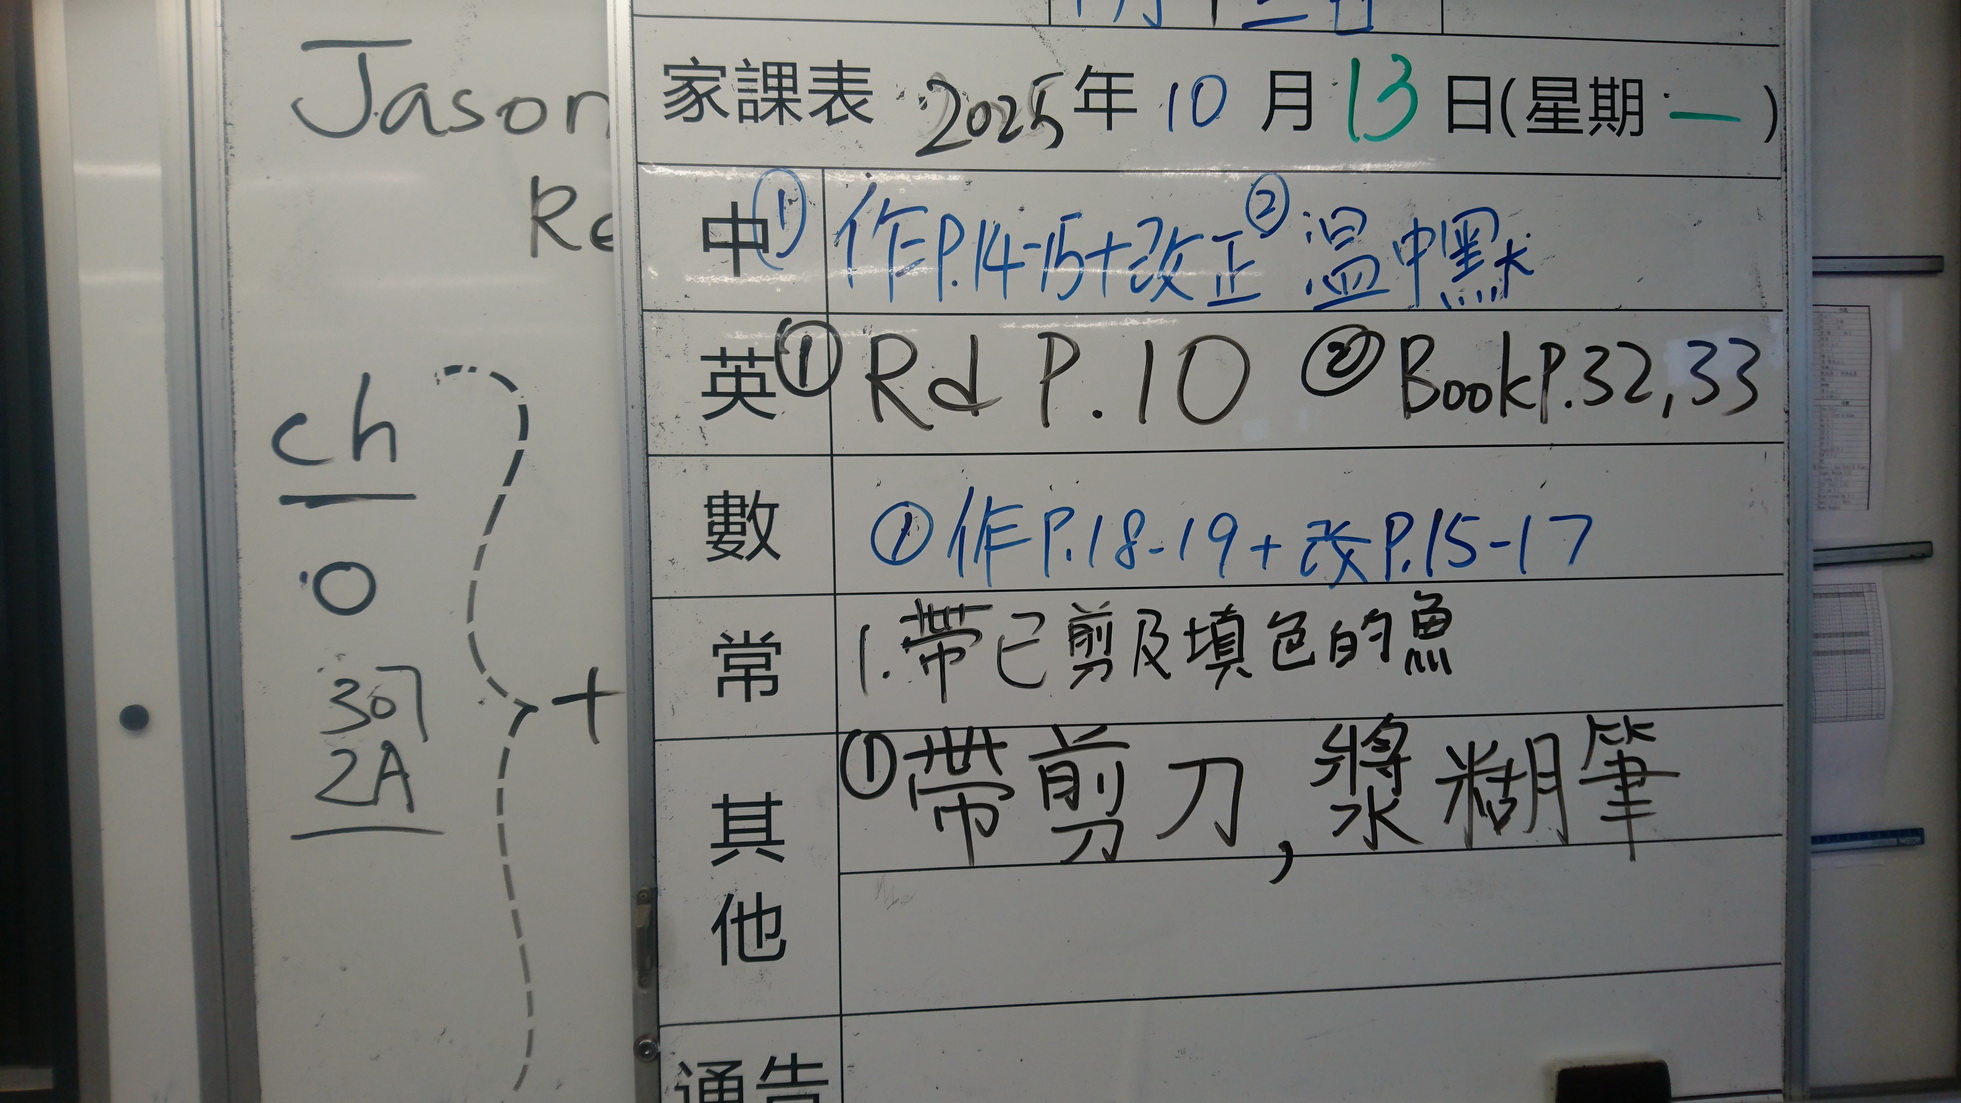 Jason
Re
ch
0
30
2A
+
家課表 2025年10月13日(星期一)
中 ① 作P.14-15+改正 ② 温中默
英 ① Rd P.10 ② Book P.32,33
數 ① 作P.18-19+改P.15-17
常 1.帶已剪及填色的魚
其他 ① 帶剪刀,漿糊筆
通告